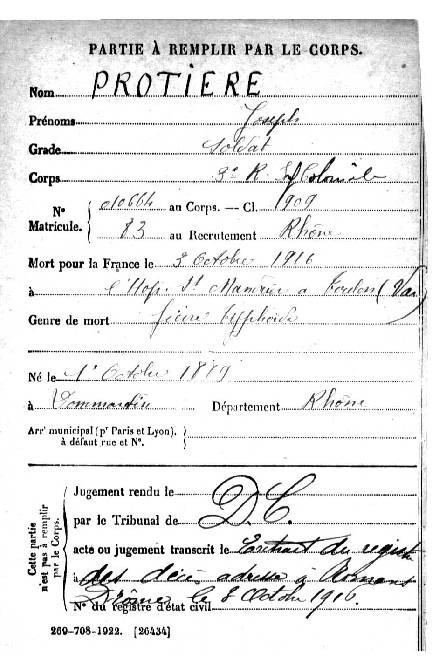 PARTIE À REMPLIR PAR LE CORPS.
Nom PROTIERE
Prénoms Joseph
Grade Soldat
Corps 3e R. If Colonial
N° Matricule. 010664 au Corps. — Cl. 1909
83 au Recrutement Rhône
Mort pour la France le 3 Octobre 1916
à l'Hop. St Mandrier à Toulon (Var)
Genre de mort fièvre typhoïde
Né le 1r Octobre 1889
à Dommartin Département Rhône
Arrt municipal (pr Paris et Lyon),
à défaut rue et N°.
Cette partie n'est pas à remplir par le Corps.
Jugement rendu le
par le Tribunal de D.C.
acte ou jugement transcrit le Extrait du registre
à des décès adressé à Romans
N° du registre d'état civil Drôme le 8 Octobre 1916.
269-708-1922. [26434]